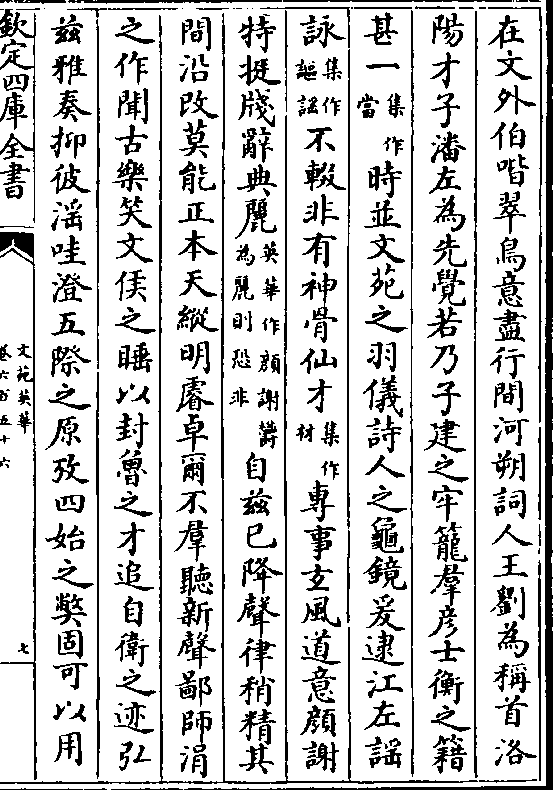 在文外伯喈翠鳥意盡行間河朔詞人王劉為稱首洛
陽才子潘左為先覺若乃子建之牢籠羣彦士衡之籍
甚一集作當時並文苑之羽儀詩人之龜鏡爰逮江左謡
詠集作謳謡不輟非有神骨仙才集作材專事玄風道意顔謝
特挺戕辭典麗英華作顔謝欝為麗則恐非自兹已降聲律稍精其
間沿改莫能正本天縱明睿卓爾不羣聽新聲鄙師涓
之作聞古樂笑文侯之睡以封魯之才追自衛之迹弘
兹雅奏抑彼淫哇澄五際之原攷四始之弊固可以用
欽定四庫全書
文苑英華
卷六百五十六
七